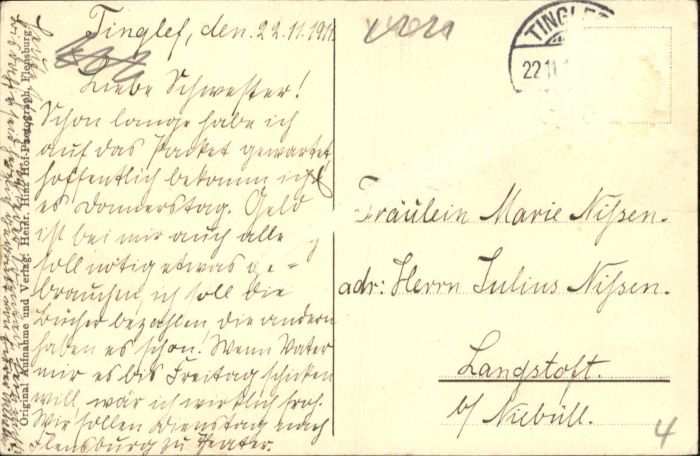 Tinglef, den. 22.11.1911
Liebe Schwester!
Schon lange habe ich
auf das Packet gewartet
hoffentlich bekomm ich
es Donnerstag. Geld
ist bei mir auch alle
soll nötig etwas ge=
brauchen, ich soll die
Bücher bezahlen die andern
haben es schon! Wenn Vater
mir es bis Freitag schicken
will, wär ich wirklich froh.
Wir sollen Dienstag nach
Flensburg zu Theater.
Original Aufnahme und Verlag: Heinr. Hinz Hof-Photograph, Flensburg.
TINGLEF
22 11
Fräulein Marie Nißen.
adr: Herrn Julius Nißen.
Langstoft.
b/ Niebüll.
4